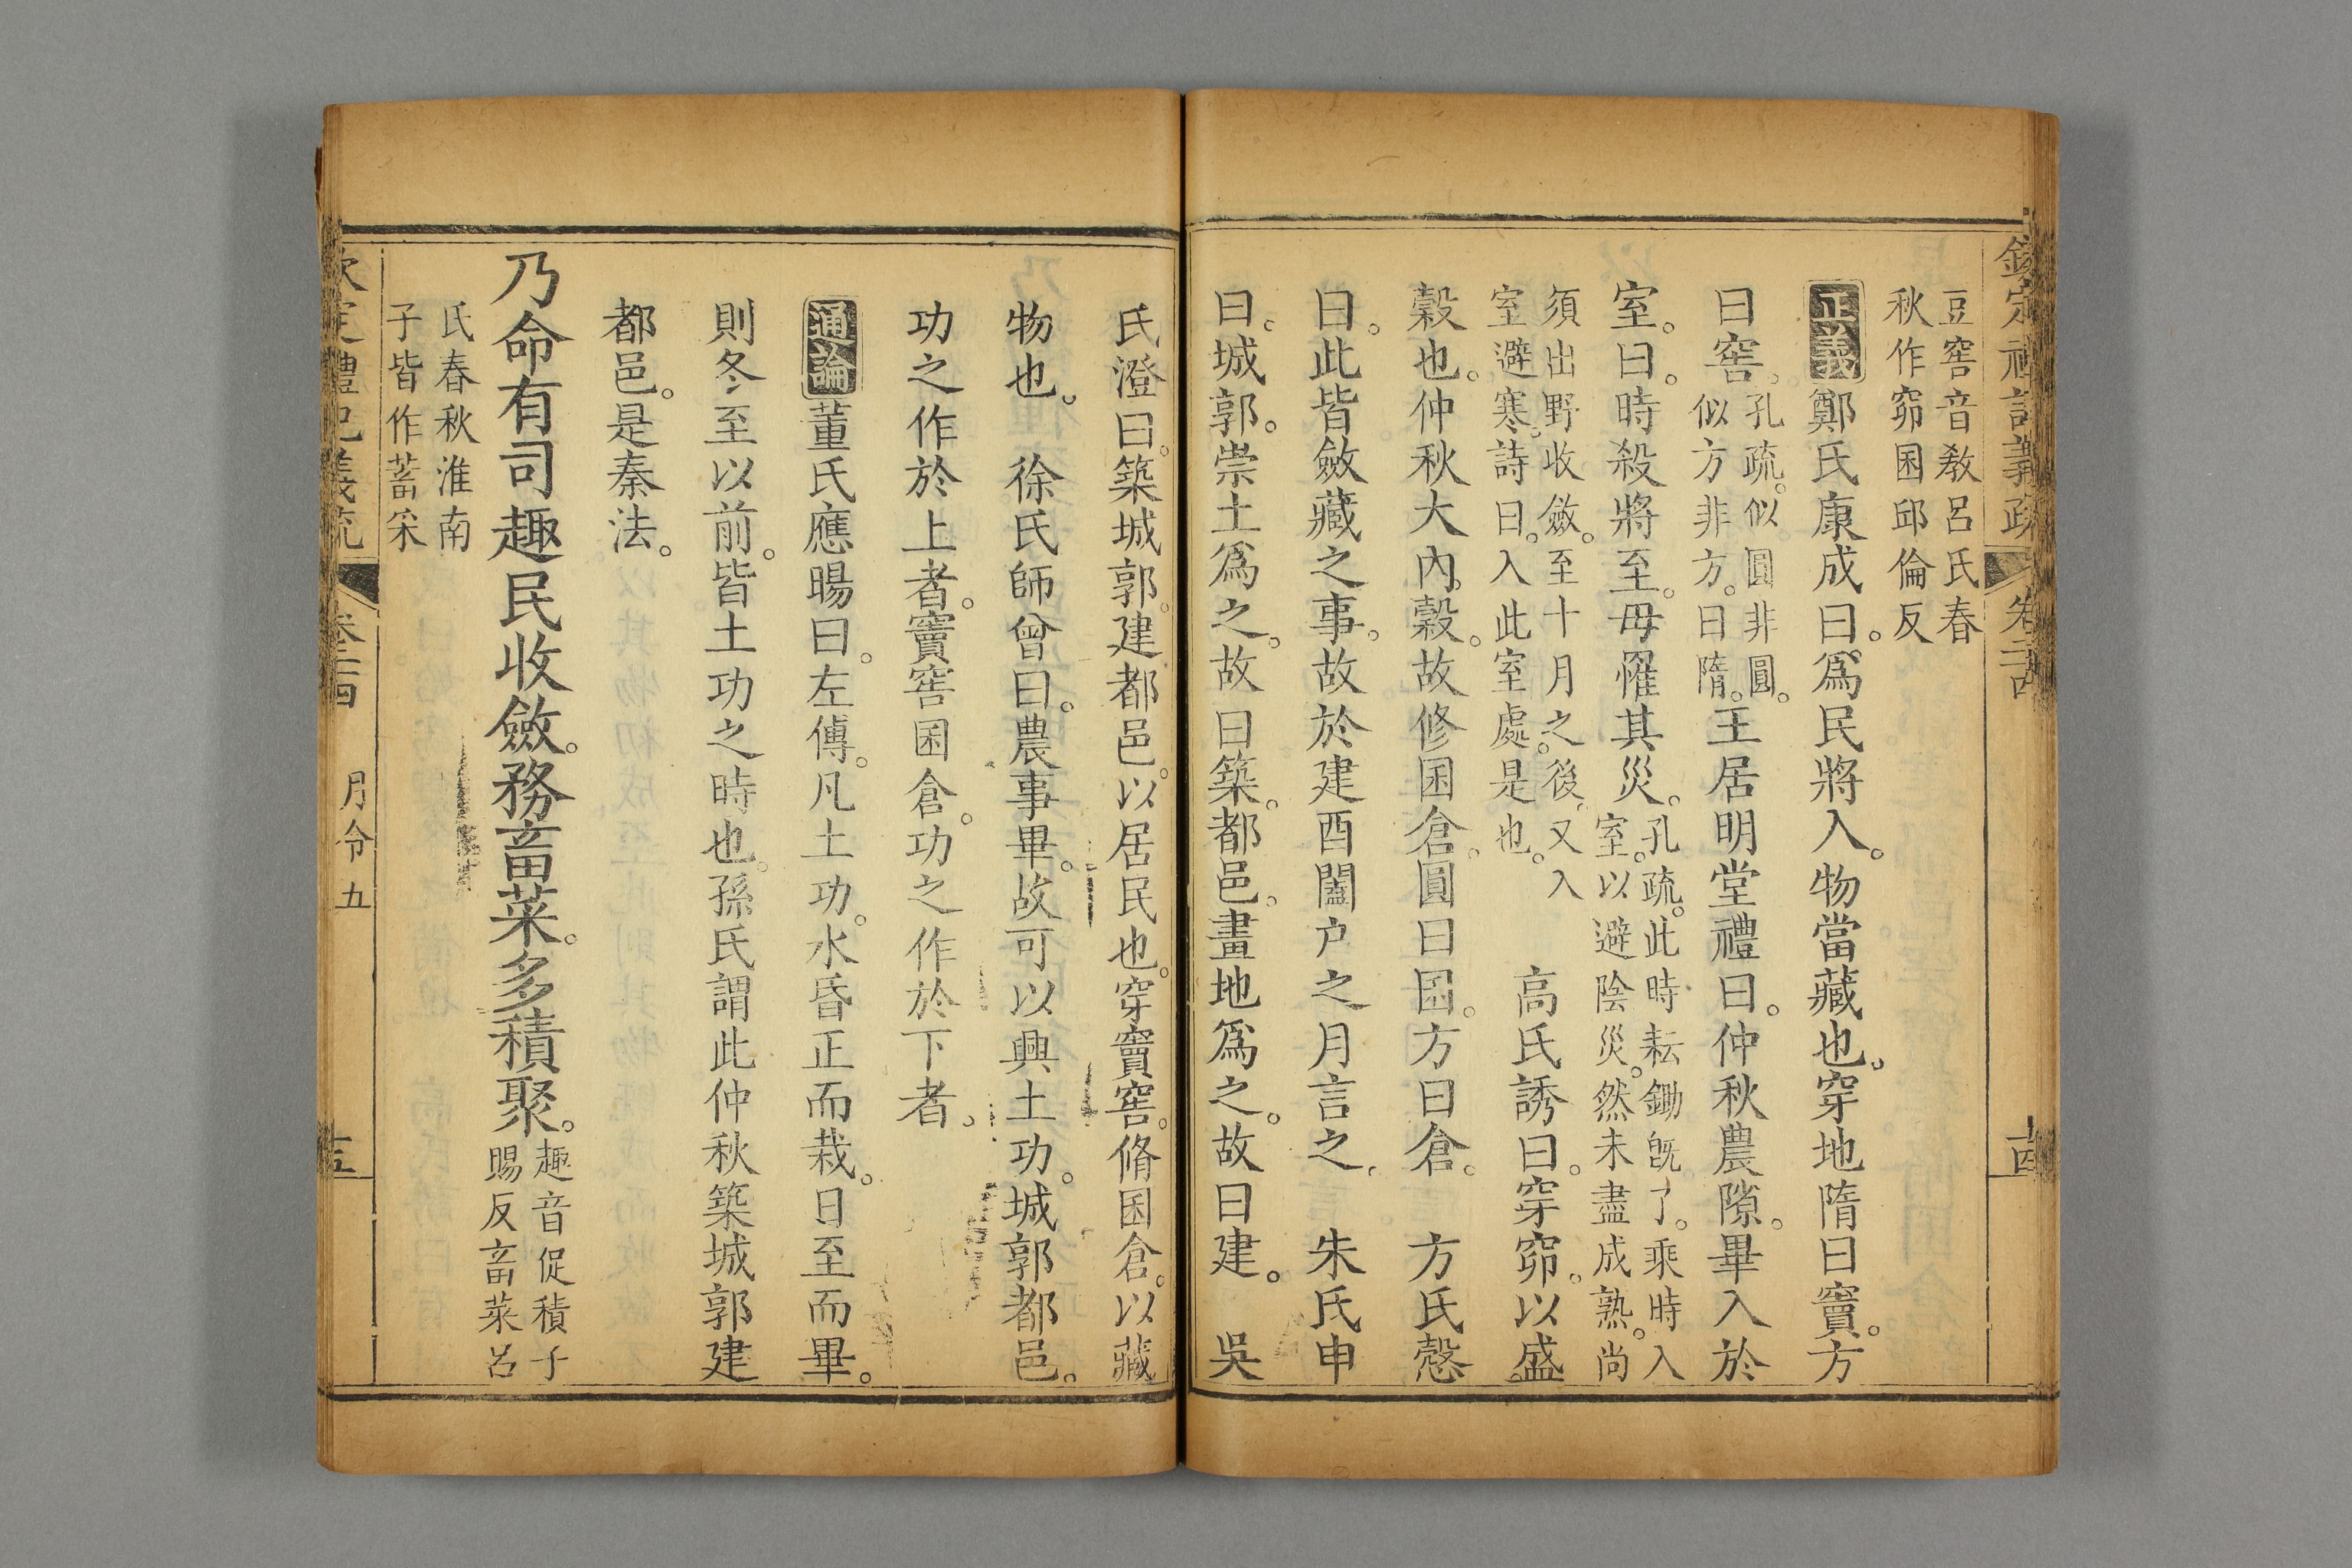 欽定禮記義疏 卷二十四 十四
豆窖音教呂氏春
秋作窌囷邱倫反
正義 鄭氏康成曰。爲民將入。物當藏也。穿地隋曰竇。方
曰窖。孔疏。似圓非圓。似方非方。曰隋。王居明堂禮曰。仲秋農隙。畢入於
室。曰。時殺將至。毋罹其災。孔疏。此時耘鋤旣了。乘時入室。以避陰災。然未盡成熟。尚
須出野收斂。至十月之後。又入室避寒。詩曰。入此室處。是也。 高氏誘曰。穿窌。以盛
穀也。仲秋大內。穀。故修囷倉。圓曰囷。方曰倉。 方氏慤
曰。此皆斂藏之事。故於建酉闔户之月言之。 朱氏申
曰。城郭。崇土爲之。故曰築。都邑。畫地爲之。故曰建。 吳
氏澄曰。築城郭。建都邑。以居民也。穿竇窖。脩囷倉。以藏
物也。 徐氏師曾曰。農事畢。故可以興土功。城郭都邑。
功之作於上者。竇窖囷倉。功之作於下者。
通論 董氏應暘曰。左傳。凡土功。水昏正而栽。日至而畢。
則冬至以前。皆土功之時也。孫氏謂此仲秋築城郭建
都邑。是秦法。
乃命有司趣民收斂。務畜菜。多積聚。趣音促積子賜反畜菜呂
氏春秋淮南
子皆作蓄采
欽定禮記義疏 卷二十四 月令五 十五